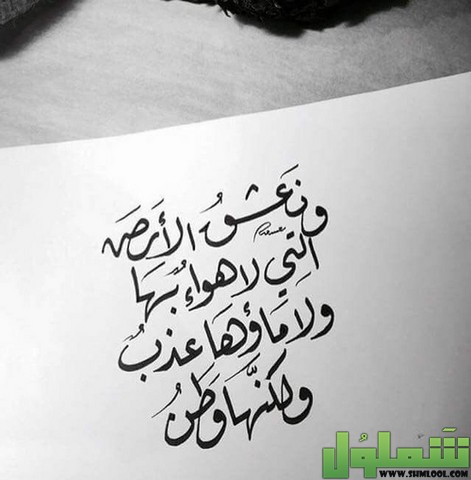 ونَعَشقُ الأَرضَ
التِي لا هواءُ بِهَا
ولا مَاؤهَا عذبُ
ولكنَّهَا وَطَنُ
شملول
WWW.SHMLOOL.COM